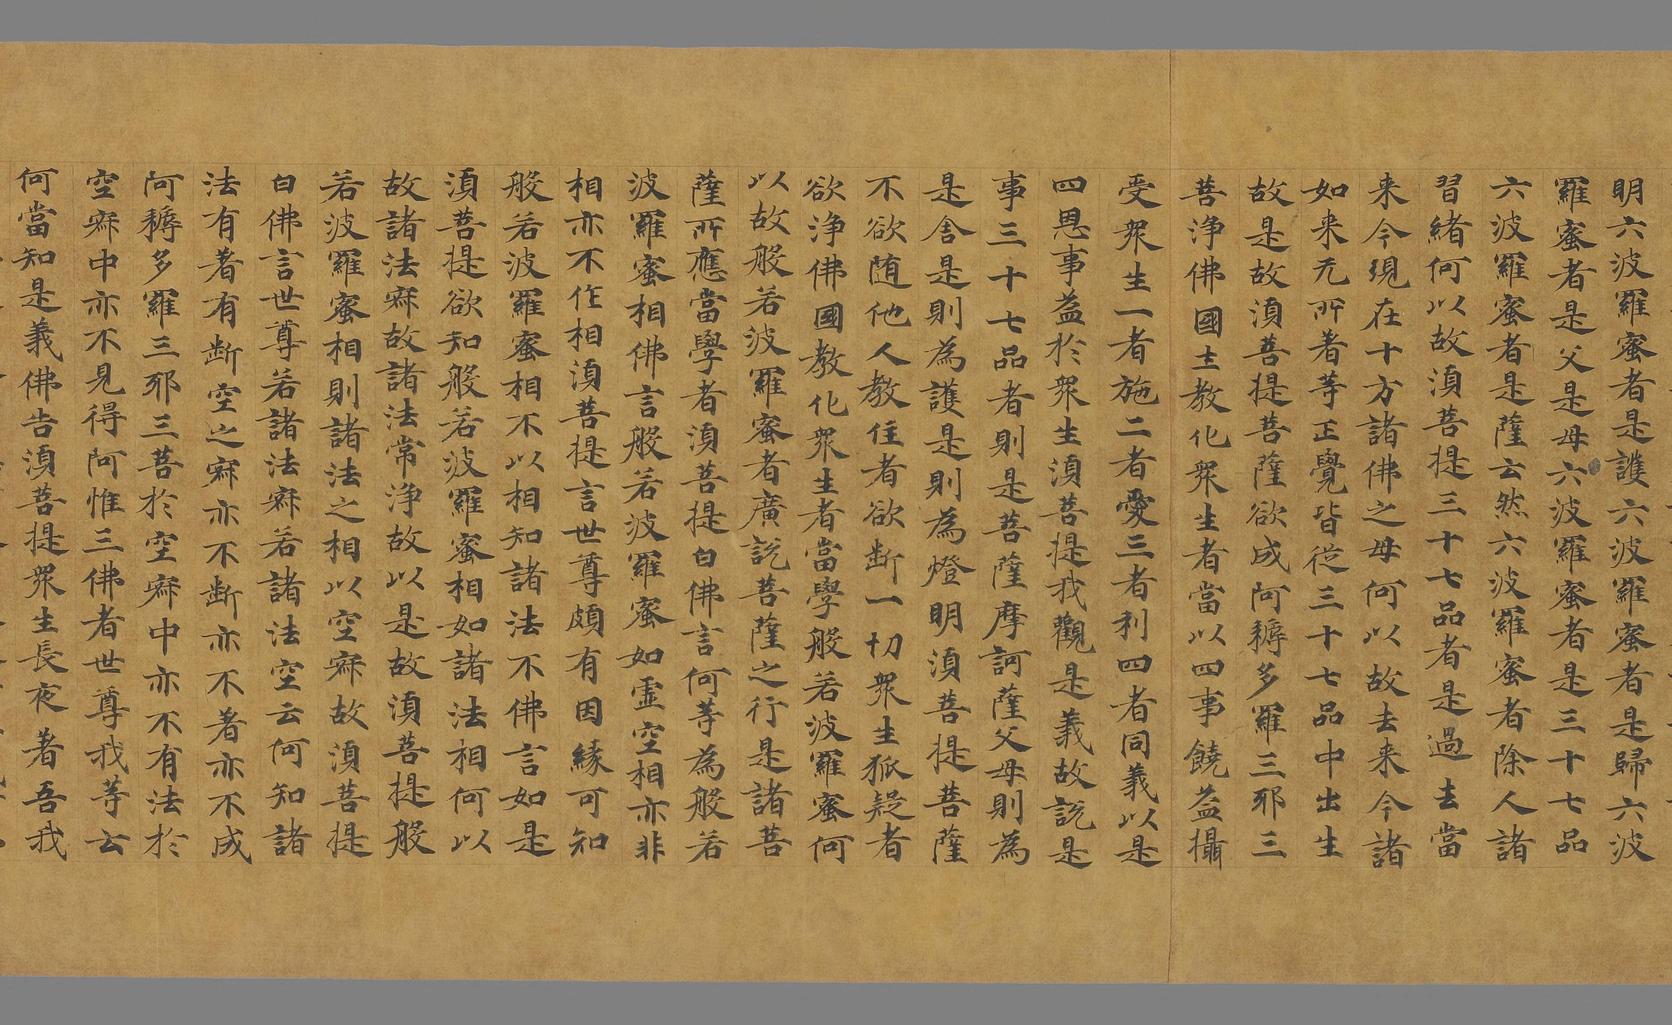 明六波羅蜜者是護六波羅蜜者是歸六波
羅蜜者是父是母六波羅蜜者是三十七品
六波羅蜜者是薩云然六波羅蜜者除人諸
習緒何以故湏菩提三十七品者是過去當
来今現在十方諸佛之母何以故去来今諸
如来无所著等正覺皆從三十七品中出生
故是故湏菩提菩薩欲成阿耨多羅三耶三
菩淨佛國土教化衆生者當以四事饒益攝
受衆生一者施二者愛三者利四者同義以是
四恩事益於衆生湏菩提我觀是義故說是
事三十七品者則是菩薩摩訶薩父母則為
是舍是則為護是則為燈明湏菩提菩薩
不欲随他人教住者欲断一切衆生狐疑者
欲淨佛國教化衆生者當學般若波羅蜜何
以故般若波羅蜜者廣說菩薩之行是諸菩
薩所應當學者湏菩提白佛言何等為般若
波羅蜜相佛言般若波羅蜜如虚空相亦非
相亦不作相湏菩提言世尊頗有因緣可知
般若波羅蜜相不以相知諸法不佛言如是
湏菩提欲知般若波羅蜜相如諸法相何以
故諸法寂故諸法常淨故以是故湏菩提般
若波羅蜜相則諸法之相以空寂故湏菩提
白佛言世尊若諸法寂若諸法空云何知諸
法有著有断空之寂亦不断亦不著亦不成
阿耨多羅三耶三菩於空寂中亦不有法於
空寂中亦不見得阿惟三佛者世尊我等云
何當知是義佛告湏菩提衆生長夜著吾我